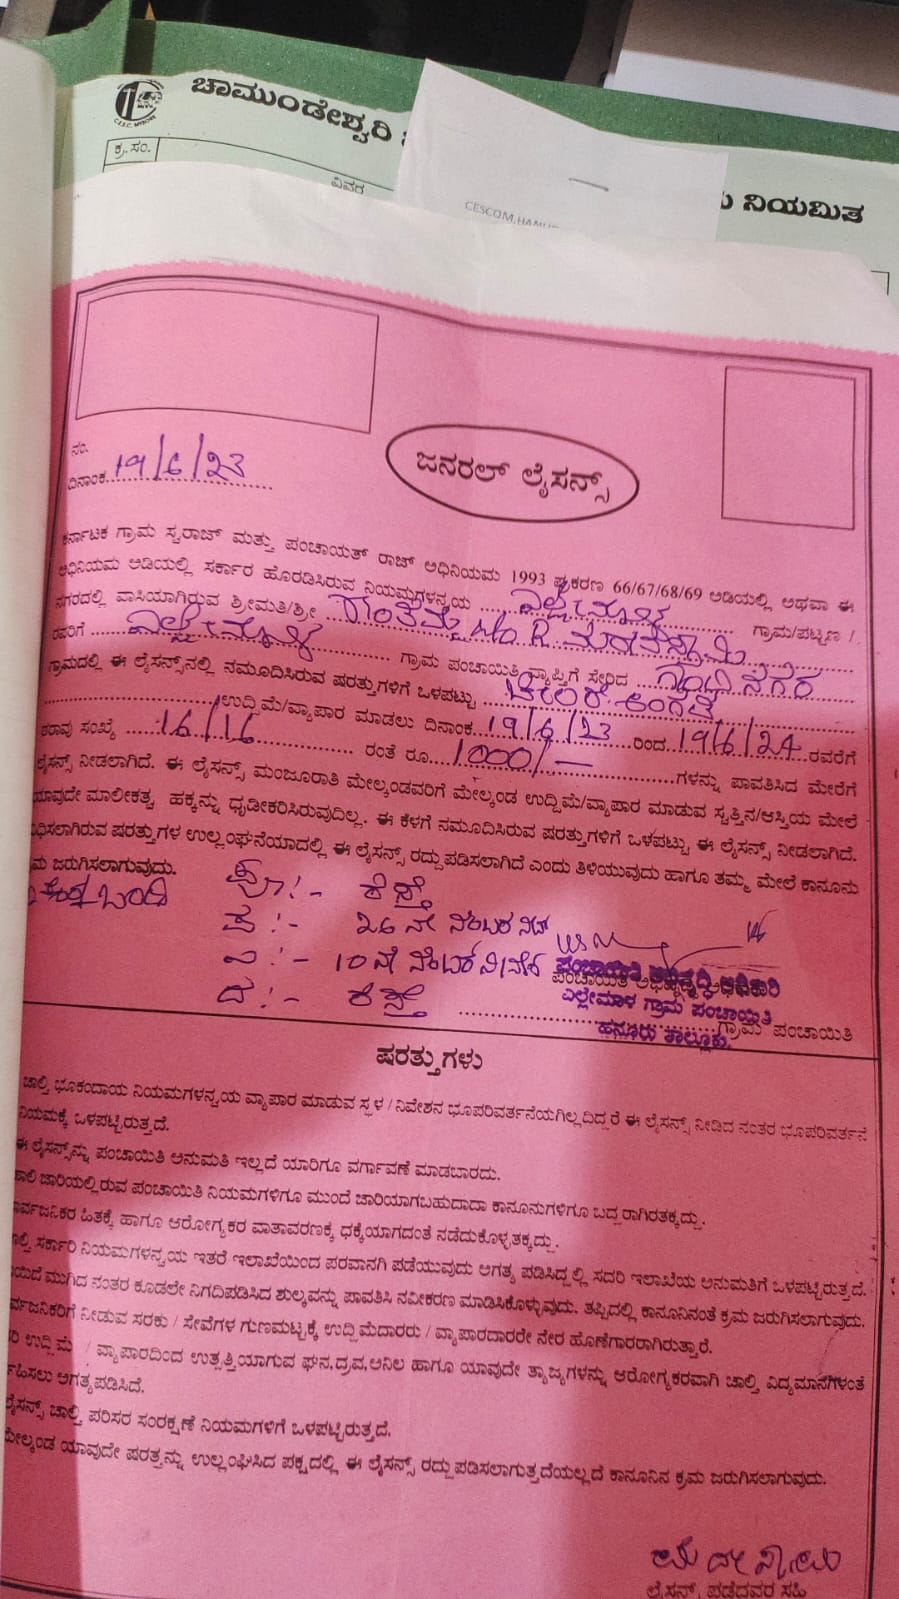 C.E.S.C. MYSORE
ಚಾಮುಂಡೇಶ್ವರಿ
ನಿಯಮಿತ
ಕ್ರ.ಸಂ.
ವಿವರ
CESCOM,HANUR
ನಂ.
ದಿನಾಂಕ 19/6/23
ಜನರಲ್ ಲೈಸನ್ಸ್
ಕರ್ನಾಟಕ ಗ್ರಾಮ ಸ್ವರಾಜ್ ಮತ್ತು ಪಂಚಾಯತ್ ರಾಜ್ ಅಧಿನಿಯಮ 1993 ಪ್ರಕರಣ 66/67/68/69 ಅಡಿಯಲ್ಲಿ ಅಥವಾ ಈ
ಅಧಿನಿಯಮ ಅಡಿಯಲ್ಲಿ ಸರ್ಕಾರ ಹೊರಡಿಸಿರುವ ನಿಯಮಗಳನ್ವಯ ಎಲ್ಲೇಮಾಳ ಗ್ರಾಮ/ಪಟ್ಟಣ /
ನಗರದಲ್ಲಿ ವಾಸಿಯಾಗಿರುವ ಶ್ರೀಮತಿ/ಶ್ರೀ
ರವರಿಗೆ ಎಲ್ಲೇಮಾಳ ಗ್ರಾಮ ಪಂಚಾಯಿತಿ ವ್ಯಾಪ್ತಿಗೆ ಸೇರಿದ ಗಾಂಧಿನಗರ
ಗ್ರಾಮದಲ್ಲಿ ಈ ಲೈಸನ್ಸ್‌ನಲ್ಲಿ ನಮೂದಿಸಿರುವ ಷರತ್ತುಗಳಿಗೆ ಒಳಪಟ್ಟು ಅಂಗಡಿ
ಉದ್ದಿಮೆ/ವ್ಯಾಪಾರ ಮಾಡಲು ದಿನಾಂಕ 19/6/23 ರಿಂದ 19/6/24 ರವರೆಗೆ
ಠರಾವು ಸಂಖ್ಯೆ 16/16 ರಂತೆ ರೂ. 1000/- ಗಳನ್ನು ಪಾವತಿಸಿದ ಮೇರೆಗೆ
ಲೈಸನ್ಸ್ ನೀಡಲಾಗಿದೆ. ಈ ಲೈಸನ್ಸ್ ಮಂಜೂರಾತಿ ಮೇಲ್ಕಂಡವರಿಗೆ ಮೇಲ್ಕಂಡ ಉದ್ದಿಮೆ/ವ್ಯಾಪಾರ ಮಾಡುವ ಸ್ವತ್ತಿನ/ಆಸ್ತಿಯ ಮೇಲೆ
ಯಾವುದೇ ಮಾಲೀಕತ್ವ ಹಕ್ಕನ್ನು ಧೃಡೀಕರಿಸಿರುವುದಿಲ್ಲ. ಈ ಕೆಳಗೆ ನಮೂದಿಸಿರುವ ಷರತ್ತುಗಳಿಗೆ ಒಳಪಟ್ಟು ಈ ಲೈಸನ್ಸ್ ನೀಡಲಾಗಿದೆ.
ಧಿಸಲಾಗಿರುವ ಷರತ್ತುಗಳ ಉಲ್ಲಂಘನೆಯಾದಲ್ಲಿ ಈ ಲೈಸನ್ಸ್ ರದ್ದುಪಡಿಸಲಾಗಿದೆ ಎಂದು ತಿಳಿಯುವುದು ಹಾಗೂ ತಮ್ಮ ಮೇಲೆ ಕಾನೂನು
ಮ ಜರುಗಿಸಲಾಗುವುದು.
ಚೆಕ್ಕುಬಂದಿ
ಪೂ:- ರಸ್ತೆ
ಪ:- 26 ನೇ ನಂಬರ
ಉ:- 10 ನೇ ನಂಬರ್
ದ:- ರಸ್ತೆ
ಪಂಚಾಯಿತಿ ಅಭಿವೃದ್ಧಿ ಅಧಿಕಾರಿ
ಪಂಚಾಯಿತಿ ಅಭಿವೃದ್ಧಿ ಅಧಿಕಾರಿ
ಎಲ್ಲೇಮಾಳ ಗ್ರಾಮ ಪಂಚಾಯಿತಿ
ಗ್ರಾಮ ಪಂಚಾಯಿತಿ
ಹನೂರು ತಾಲ್ಲೂಕು.
ಷರತ್ತುಗಳು
ಚಾಲ್ತಿ ಭೂಕಂದಾಯ ನಿಯಮಗಳನ್ವಯ ವ್ಯಾಪಾರ ಮಾಡುವ ಸ್ಥಳ / ನಿವೇಶನ ಭೂಪರಿವರ್ತನೆಯಾಗಿಲ್ಲದಿದ್ದರೆ ಈ ಲೈಸನ್ಸ್ ನೀಡಿದ ನಂತರ ಭೂಪರಿವರ್ತನೆ
ನಿಯಮಕ್ಕೆ ಒಳಪಟ್ಟಿರುತ್ತದೆ.
ಈ ಲೈಸನ್ಸನ್ನು ಪಂಚಾಯಿತಿ ಅನುಮತಿ ಇಲ್ಲದೆ ಯಾರಿಗೂ ವರ್ಗಾವಣೆ ಮಾಡಬಾರದು.
ಹಾಲಿ ಜಾರಿಯಲ್ಲಿರುವ ಪಂಚಾಯಿತಿ ನಿಯಮಗಳಿಗೂ ಮುಂದೆ ಜಾರಿಯಾಗಬಹುದಾದಾ ಕಾನೂನುಗಳಿಗೂ ಬದ್ಧರಾಗಿರತಕ್ಕದ್ದು.
ಾರ್ವಜನಿಕರ ಹಿತಕ್ಕೆ ಹಾಗೂ ಆರೋಗ್ಯಕರ ವಾತಾವರಣಕ್ಕೆ ಧಕ್ಕೆಯಾಗದಂತೆ ನಡೆದುಕೊಳ್ಳತಕ್ಕದ್ದು.
ಾಲ್ತಿ ಸರ್ಕಾರಿ ನಿಯಮಗಳನ್ವಯ ಇತರೆ ಇಲಾಖೆಯಿಂದ ಪರವಾನಗಿ ಪಡೆಯುವುದು ಅಗತ್ಯ ಪಡಿಸಿದ್ದಲ್ಲಿ ಸದರಿ ಇಲಾಖೆಯ ಅನುಮತಿಗೆ ಒಳಪಟ್ಟಿರುತ್ತದೆ.
ಯಿದೆ ಮುಗಿದ ನಂತರ ಕೂಡಲೇ ನಿಗದಿಪಡಿಸಿದ ಶುಲ್ಕವನ್ನು ಪಾವತಿಸಿ ನವೀಕರಣ ಮಾಡಿಸಿಕೊಳ್ಳುವುದು. ತಪ್ಪಿದಲ್ಲಿ ಕಾನೂನಿನಂತೆ ಕ್ರಮ ಜರುಗಿಸಲಾಗುವುದು.
ರ್ವಜನಿಕರಿಗೆ ನೀಡುವ ಸರಕು / ಸೇವೆಗಳ ಗುಣಮಟ್ಟಕ್ಕೆ ಉದ್ದಿಮೆದಾರರು / ವ್ಯಾಪಾರದಾರರೇ ನೇರ ಹೊಣೆಗಾರರಾಗಿರುತ್ತಾರೆ.
ರಿ ಉದ್ದಿಮೆ / ವ್ಯಾಪಾರದಿಂದ ಉತ್ಪತ್ತಿಯಾಗುವ ಘನ,ದ್ರವ,ಅನಿಲ ಹಾಗೂ ಯಾವುದೇ ತ್ಯಾಜ್ಯಗಳನ್ನು ಆರೋಗ್ಯಕರವಾಗಿ ಚಾಲ್ತಿ ವಿದ್ಯಮಾನಗಳಂತೆ
ರ್ವಹಿಸಲು ಅಗತ್ಯಪಡಿಸಿದೆ.
ಲೈಸನ್ಸ್ ಚಾಲ್ತಿ ಪರಿಸರ ಸಂರಕ್ಷಣೆ ನಿಯಮಗಳಿಗೆ ಒಳಪಟ್ಟಿರುತ್ತದೆ.
ಮೇಲ್ಕಂಡ ಯಾವುದೇ ಷರತ್ತನ್ನು ಉಲ್ಲಂಘಿಸಿದ ಪಕ್ಷದಲ್ಲಿ ಈ ಲೈಸನ್ಸ್ ರದ್ದುಪಡಿಸಲಾಗುತ್ತದೆಯಲ್ಲದೆ ಕಾನೂನಿನ ಕ್ರಮ ಜರುಗಿಸಲಾಗುವುದು.
ಲೈಸನ್ಸ್ ಪಡೆದವರ ಸಹಿ